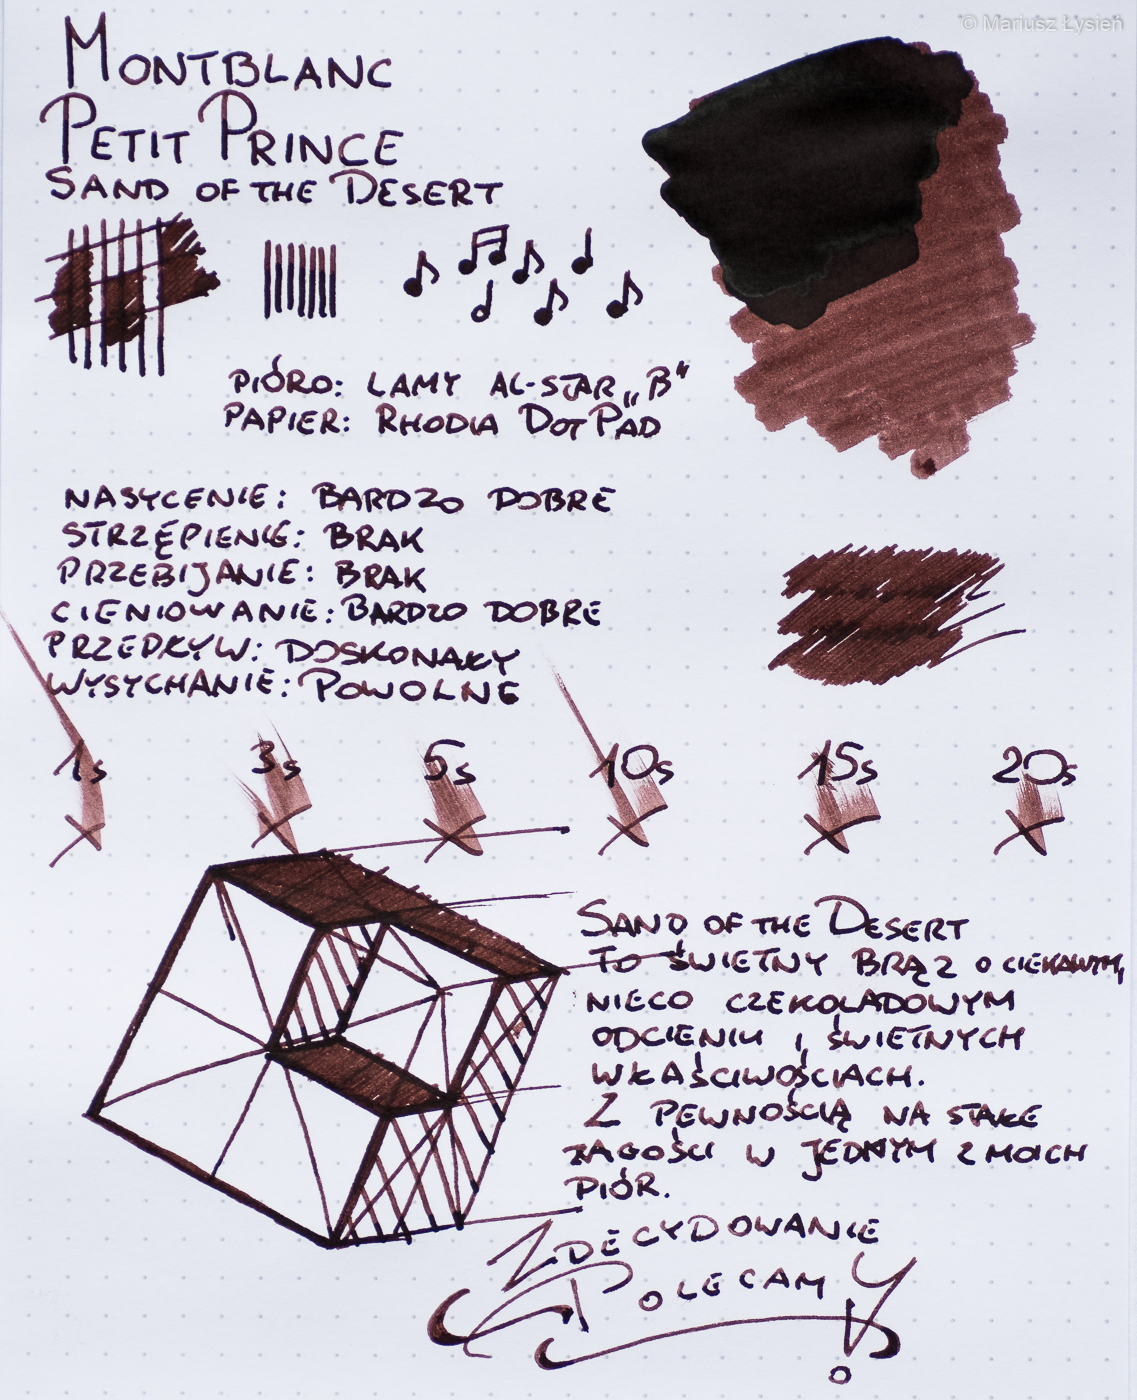 © Mariusz Łysień
MONTBLANC
PETIT PRINCE
SAND OF THE DESERT
PIÓRO: LAMY AL-STAR „B"
PAPIER: RHODIA DOTPAD
NASYCENIE: BARDZO DOBRE
STRZĘPIENIE: BRAK
PRZEBIJANIE: BRAK
CIENIOWANIE: BARDZO DOBRE
PRZEPŁYW: DOSKONAŁY
WYSYCHANIE: POWOLNE
1s 3s 5s 10s 15s 20s
SAND OF THE DESERT
TO ŚWIETNY BRĄZ O CIEKAWYM,
NIECO CZEKOLADOWYM
ODCIENIU I ŚWIETNYCH
WŁAŚCIWOŚCIACH.
Z PEWNOŚCIĄ NA STAŁE
ZAGOŚCI W JEDNYM Z MOICH
PIÓR.
ZDECYDOWANIE
POLECAMY!